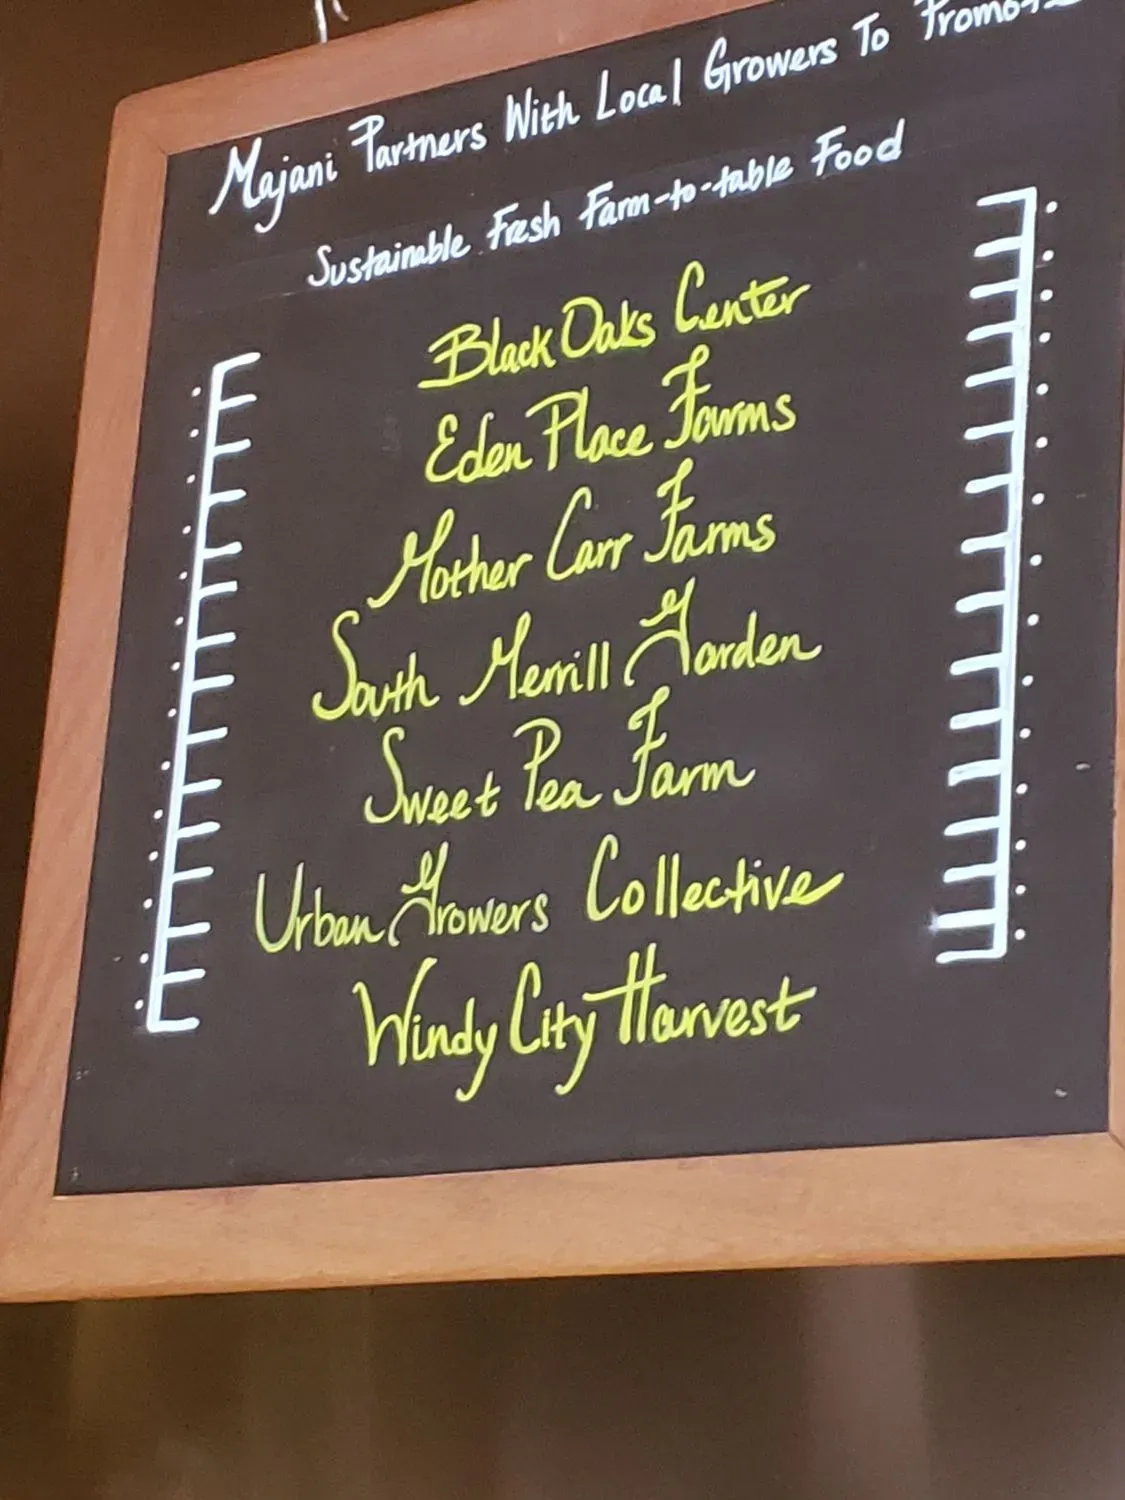 Majani Partners With Local Growers To Promote
Sustainable Fresh Farm-to-table Food
Black Oaks Center
Eden Place Farms
Mother Carr Farms
South Merrill Garden
Sweet Pea Farm
Urban Growers Collective
Windy City Harvest